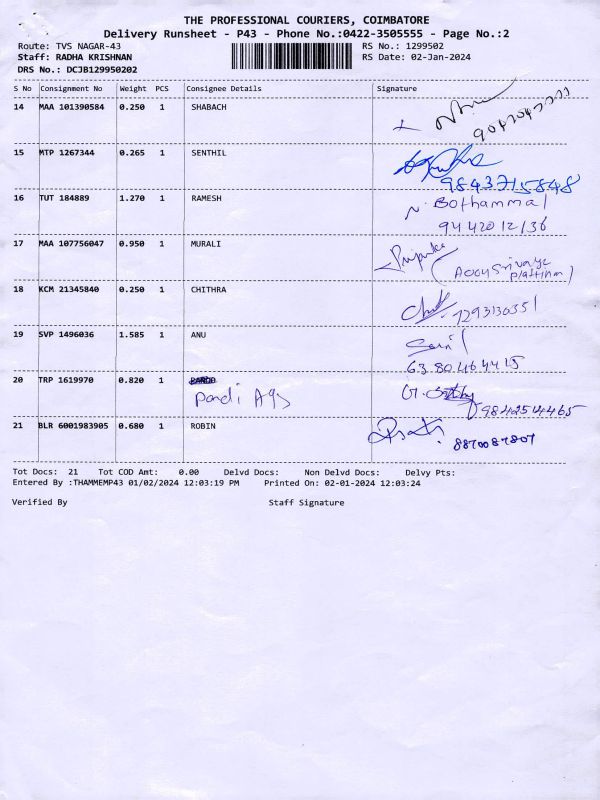 THE PROFESSIONAL COURIERS, COIMBATORE
Delivery Runsheet - P43 - Phone No.:0422-3505555 - Page No.:2
Route: TVS NAGAR-43 RS No.: 1299502
Staff: RADHA KRISHNAN RS Date: 02-Jan-2024
DRS No.: DCJB129950202
S No Consignment No Weight PCS Consignee Details Signature
14 MAA 101390584 0.250 1 SHABACH
15 MTP 1267344 0.265 1 SENTHIL
9843715848
16 TUT 184889 1.270 1 RAMESH N. Bothammal
9442012136
17 MAA 107756047 0.950 1 MURALI Priyanka
18 KCM 21345840 0.250 1 CHITHRA
7293130351
19 SVP 1496036 1.585 1 ANU
6380464415
20 TRP 1619970 0.820 1
Pandi Ags 9842514465
21 BLR 6001983905 0.680 1 ROBIN
8870087807
Tot Docs: 21 Tot COD Amt: 0.00 Delvd Docs: Non Delvd Docs: Delvy Pts:
Entered By :THAMMEMP43 01/02/2024 12:03:19 PM Printed On: 02-01-2024 12:03:24
Verified By Staff Signature